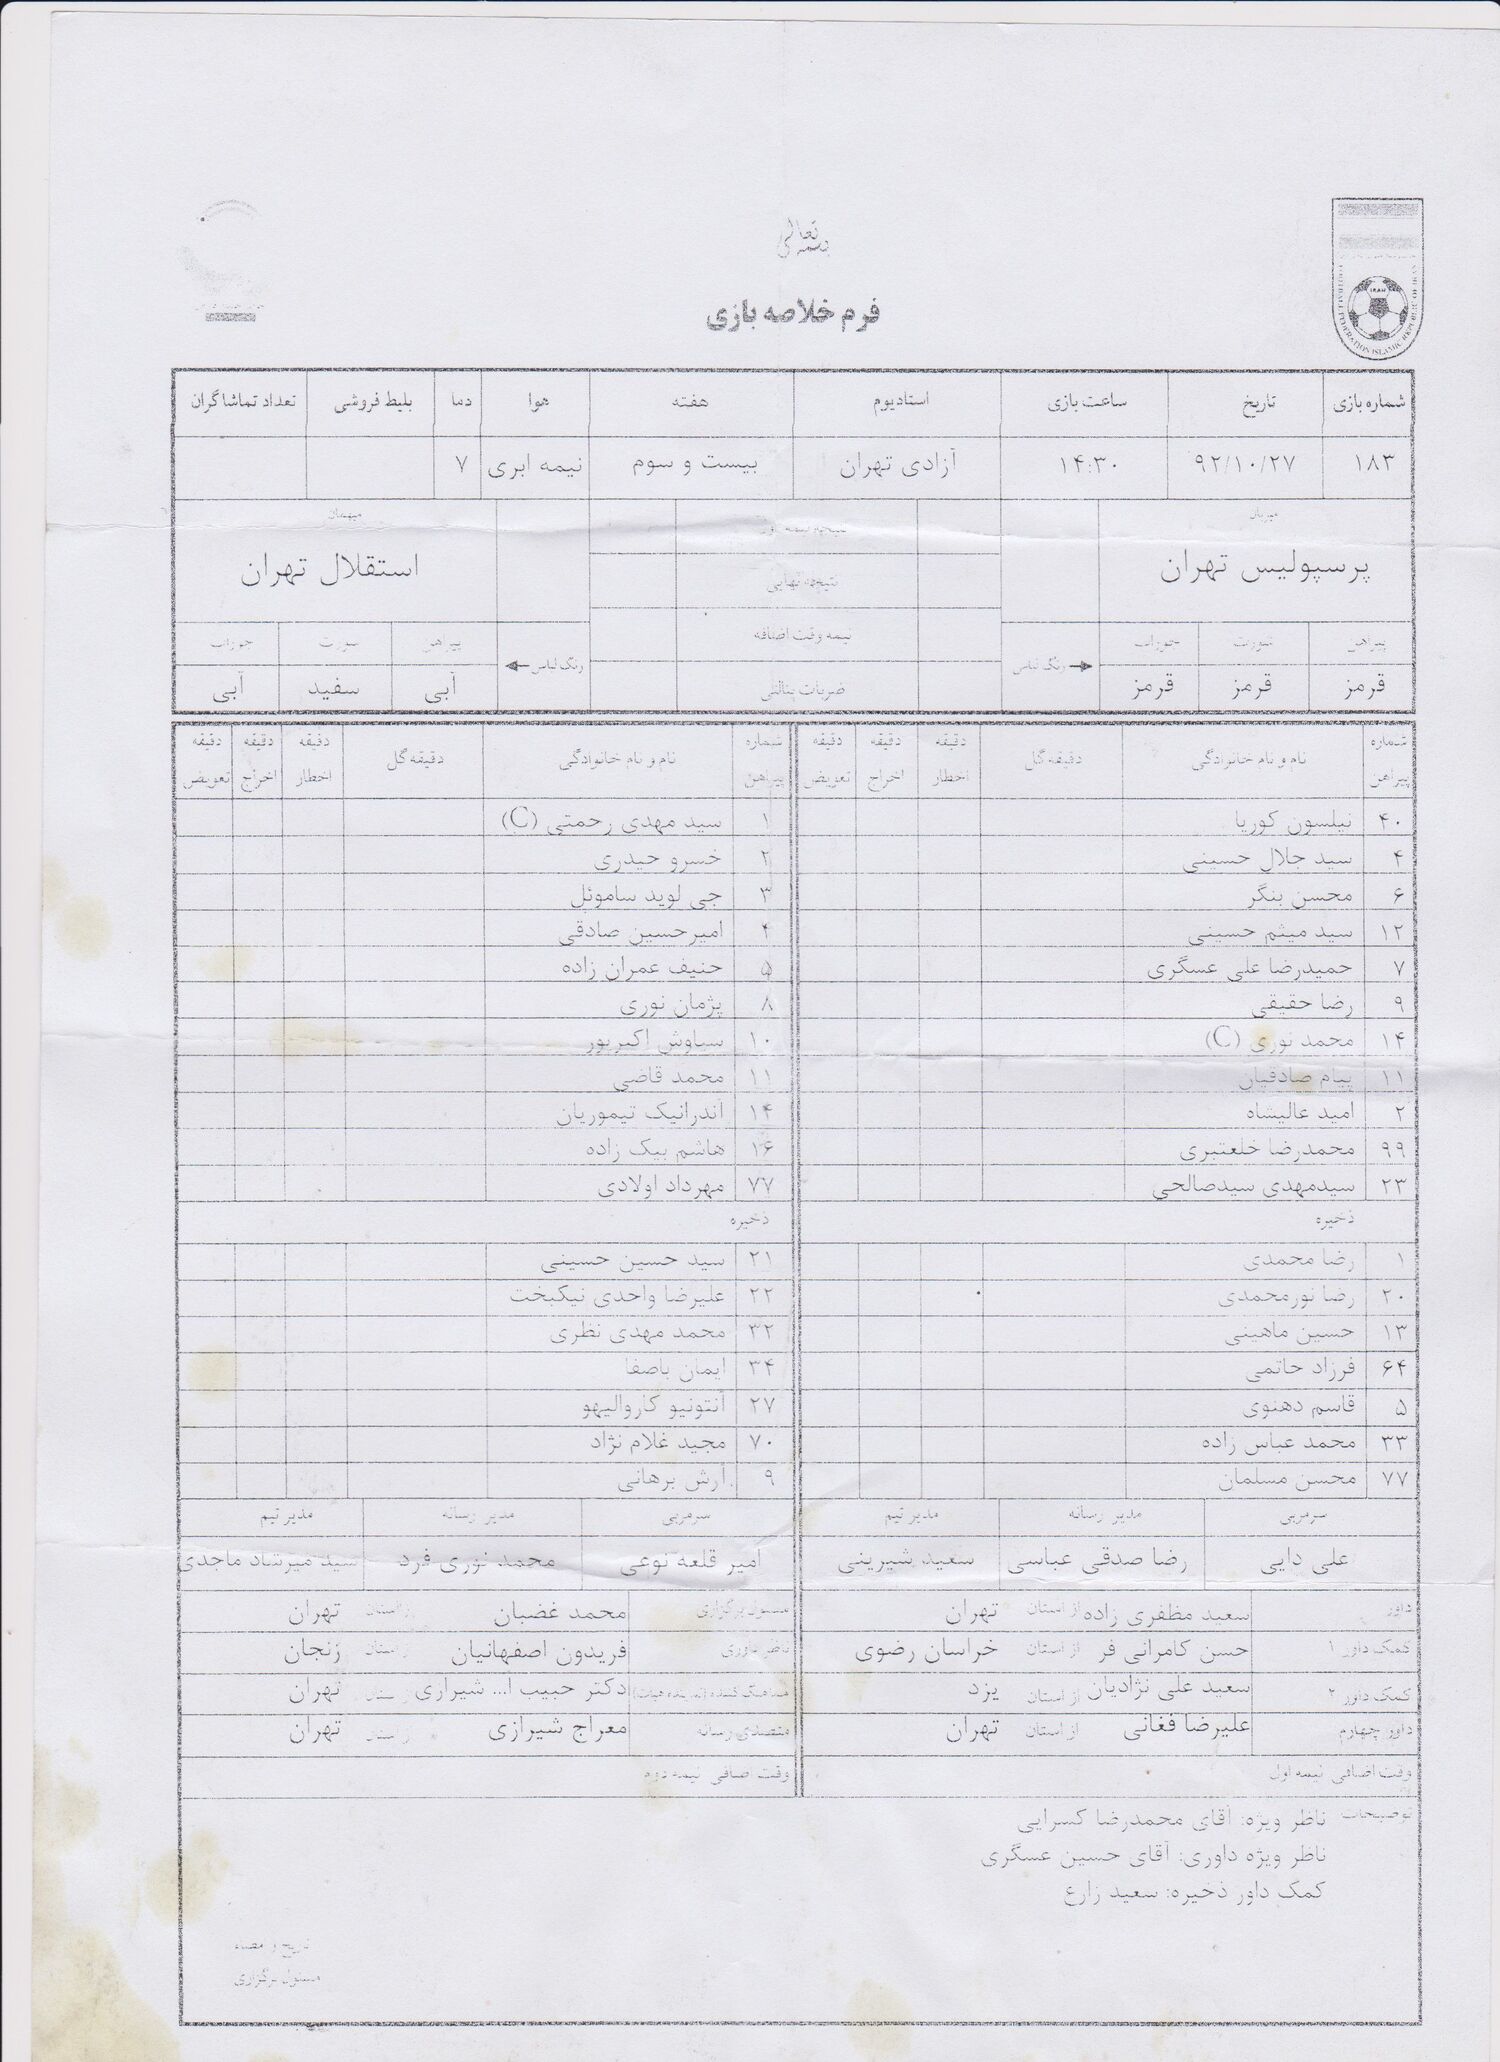 بسمه تعالی
فرم خلاصه بازی
IRAN
FOOTBALL FEDERATION ISLAMIC REPUBLIC OF IRAN
شماره بازی تاریخ ساعت بازی استادیوم هفته هوا دما بلیط فروشی تعداد تماشاگران
۱۸۳ ۹۲/۱۰/۲۷ ۱۴:۳۰ آزادی تهران بیست و سوم نیمه ابری ۷
میزبان نتیجه نیمه اول میهمان
پرسپولیس تهران نتیجه نهایی استقلال تهران
نیمه وقت اضافه
پیراهن شورت جوراب رنگ لباس ضربات پنالتی رنگ لباس پیراهن شورت جوراب
قرمز قرمز قرمز آبی سفید آبی
شماره پیراهن نام و نام خانوادگی دقیقه گل دقیقه اخطار دقیقه اخراج دقیقه تعویض شماره پیراهن نام و نام خانوادگی دقیقه گل دقیقه اخطار دقیقه اخراج دقیقه تعویض
۴۰ نیلسون کوریا ۱ سید مهدی رحمتی (C)
۴ سید جلال حسینی ۲ خسرو حیدری
۶ محسن بنگر ۳ جی لوید ساموئل
۱۲ سید میثم حسینی ۴ امیرحسین صادقی
۷ حمیدرضا علی عسگری ۵ حنیف عمران زاده
۹ رضا حقیقی ۸ پژمان نوری
۱۴ محمد نوری (C) ۱۰ سیاوش اکبرپور
۱۱ پیام صادقیان ۱۱ محمد قاضی
۲ امید عالیشاه ۱۴ آندرانیک تیموریان
۹۹ محمدرضا خلعتبری ۱۶ هاشم بیک زاده
۲۳ سیدمهدی سیدصالحی ۷۷ مهرداد اولادی
ذخیره ذخیره
۱ رضا محمدی ۲۱ سید حسین حسینی
۲۰ رضا نورمحمدی ۲۲ علیرضا واحدی نیکبخت
۱۳ حسین ماهینی ۳۲ محمد مهدی نظری
۶۴ فرزاد حاتمی ۳۴ ایمان باصفا
۵ قاسم دهنوی ۲۷ آنتونیو کاروالیهو
۳۳ محمد عباس زاده ۷۰ مجید غلام نژاد
۷۷ محسن مسلمان ۹ آرش برهانی
سرمربی مدیر رسانه مدیر تیم سرمربی مدیر رسانه مدیر تیم
علی دایی رضا صدقی عباسی سعید شیرینی امیر قلعه نوعی محمد نوری فرد سید میرشاد ماجدی
داور سعید مظفری زاده از استان تهران مسئول برگزاری محمد غضبان از استان تهران
کمک داور ۱ حسن کامرانی فر از استان خراسان رضوی ناظر داوری فریدون اصفهانیان از استان زنجان
کمک داور ۲ سعید علی نژادیان از استان یزد هماهنگ کننده (نماینده هیات) دکتر حبیب ا... شیرازی از استان تهران
داور چهارم علیرضا فغانی از استان تهران متصدی رسانه معراج شیرازی از استان تهران
وقت اضافی نیمه اول وقت اضافی نیمه دوم
توضیحات ناظر ویژه: آقای محمدرضا کسرایی
ناظر ویژه داوری: آقای حسین عسگری
کمک داور ذخیره: سعید زارع
تاریخ و امضاء
مسئول برگزاری